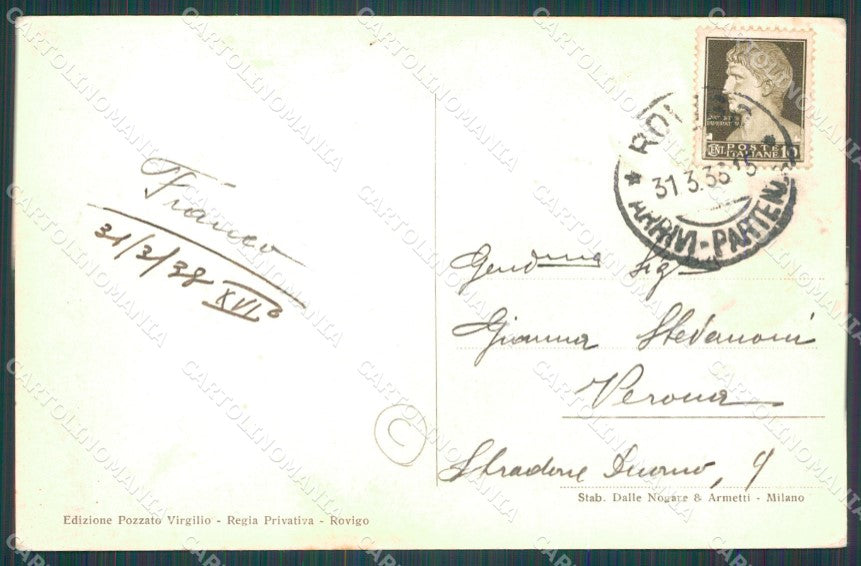 Franco
31/3/38 XVIº
Gent.ma Sig.
Gianna Stevanoni
Verona
Stradone Duomo, 9
ROVIGO
31 3.38 15
* ARRIVI-PARTENZE *
POSTE
ITALIANE 10
Edizione Pozzato Virgilio - Regia Privativa - Rovigo
Stab. Dalle Nogare & Armetti - Milano
C
CARTOLINOMANIA